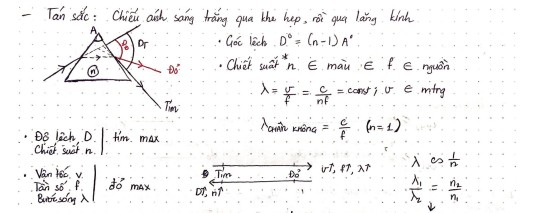 - Tán sắc: Chiếu ánh sáng trắng qua khe hẹp, rồi qua lăng kính
A
Dđ
DT
n
Đỏ
Tím
• Góc lệch D° = (n-1) A°
• Chiết suất* n ∈ màu ∈ f ∈ nguồn
λ = v/f = c/nf = const; v ∈ mtrg
λchân không = c/f (n=1)
• Độ lệch D
Chiết suất n | tím max
• Vận tốc v.
Tần số f.
Bước sóng λ | đỏ max
Tím Đỏ
v↑, f↑, λ↑
D↑, n↑
λ ∞ 1/n
λ₁/λ₂ = n₂/n₁